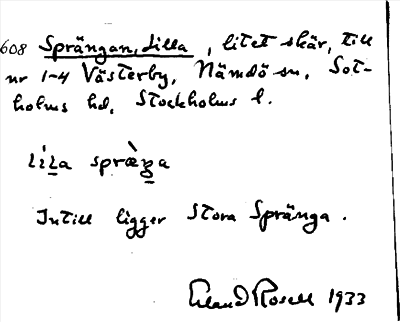 608 Sprängan, Lilla, litet skär, till
nr 1-4 Västerby, Nämdö sn, Sot-
holms hd, Stockholms l.
Intill ligger Stora Spränga.
Erland Rosell 1933